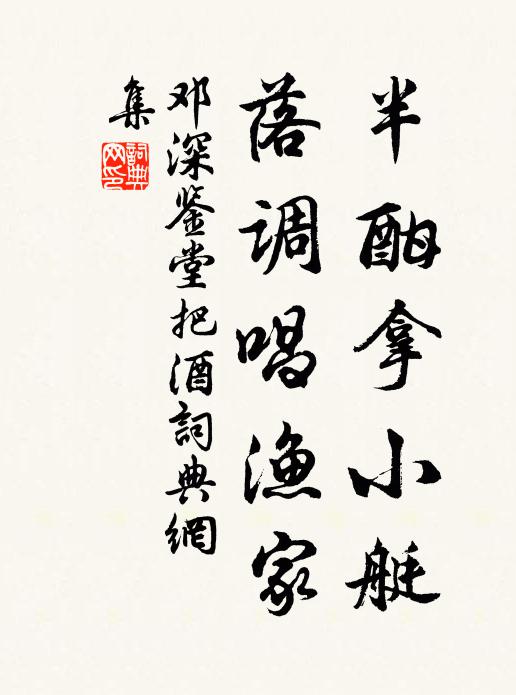 半酣拿小艇
落调唱渔家
邓深鉴堂把酒詞典網
集
詞典网印